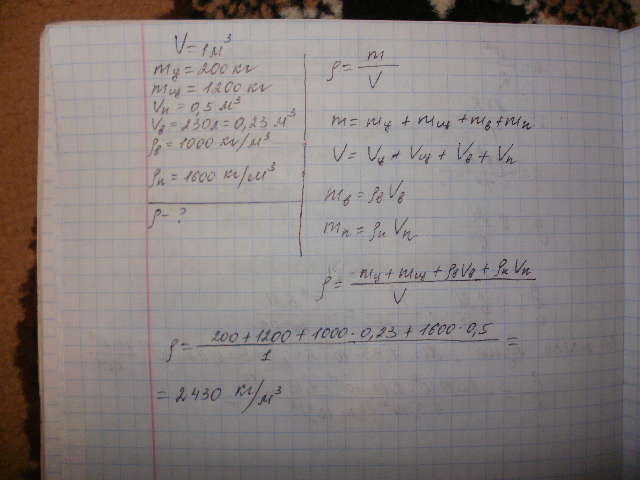 V = 1 м³
mц = 200 кг
mщ = 1200 кг
Vп = 0,5 м³
Vв = 230л = 0,23 м³
ρв = 1000 кг/м³
ρп = 1600 кг/м³
ρ - ?
ρ = m/V
m = mц + mщ + mв + mп
V = Vц + Vщ + Vв + Vп
mв = ρв Vв
mп = ρп Vп
ρ = (mц + mщ + ρвVв + ρпVп)/V
ρ = (200 + 1200 + 1000 · 0,23 + 1600 · 0,5)/1 =
= 2430 кг/м³